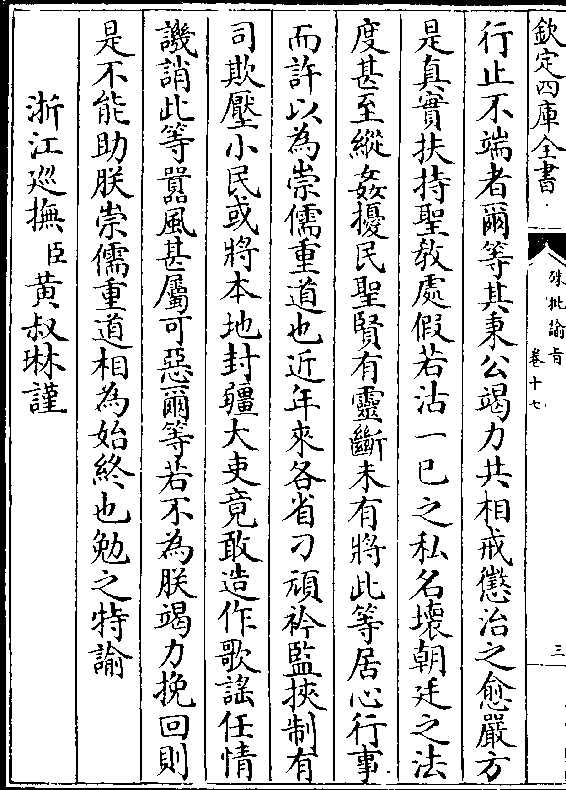 欽定四庫全書
硃批諭旨
卷十七
三
行止不端者爾等其秉公竭力共相戒懲治之愈嚴方
是真實扶持聖教處假若沽一己之私名壞朝廷之法
度甚至縱姦擾民聖賢有靈斷未有將此等居心行事
而許以為崇儒重道也近年來各省刁頑衿監挾制有
司欺壓小民或將本地封疆大吏竟敢造作歌謡任情
譏誚此等囂風甚屬可惡爾等若不為朕竭力挽回則
是不能助朕崇儒重道相為始終也勉之特諭
浙江廵撫臣黃叔琳謹